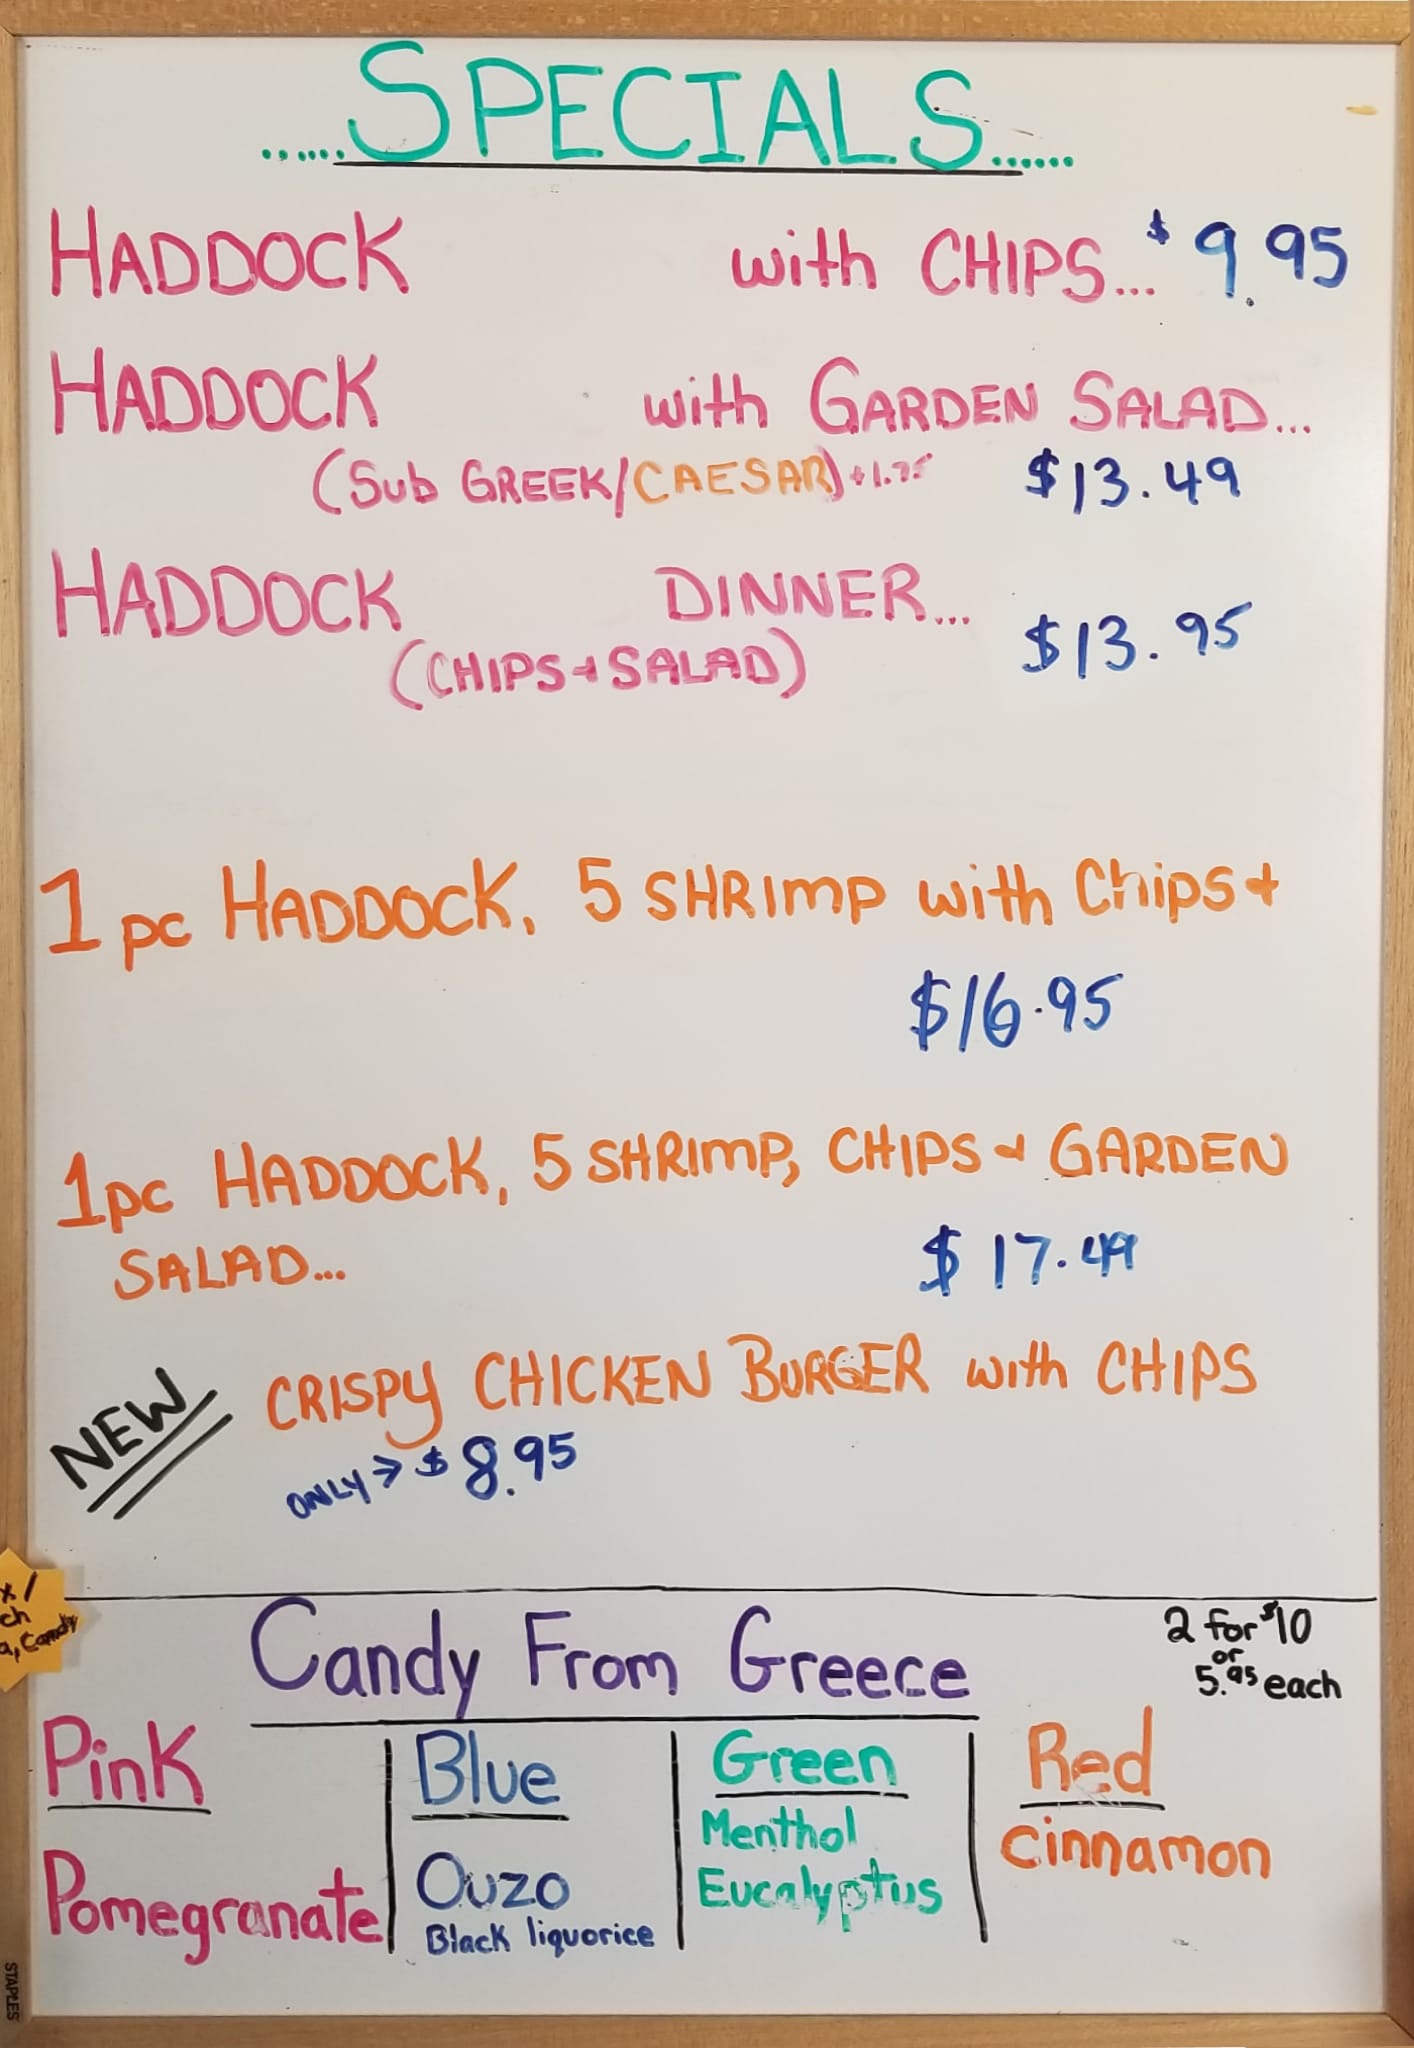 ......SPECIALS......
HADDOCK with CHIPS... $9.95
HADDOCK with GARDEN SALAD...
(Sub GREEK/CAESAR) +1.75 $13.49
HADDOCK DINNER... $13.95
(CHIPS + SALAD)
1 pc HADDOCK, 5 SHRIMP with Chips +
$16.95
1pc HADDOCK, 5 SHRIMP, CHIPS + GARDEN
SALAD... $17.49
NEW CRISPY CHICKEN BURGER with CHIPS
ONLY > $8.95
x/
ch
a, Candy
Candy From Greece
2 for $10
or
5.95 each
Pink
Pomegranate
Blue
Ouzo
Black liquorice
Green
Menthol
Eucalyptus
Red
Cinnamon
STAPLES